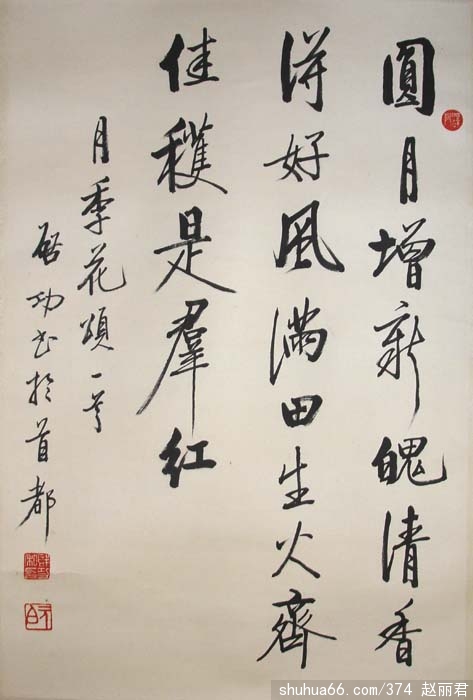 圓月增新魄清香
得好風滿田生火齊
佳穫是羣紅
月季花頌一首
啓功书於首都
元白
shuhua66.com/374 赵丽君